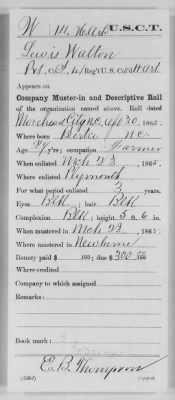 W 14 H. Art. U.S.C.T.
Lewis Walton
Pvt., Co. , Reg't U.S. Col'd H. Art.
Appears on
Company Muster-in and Descriptive Roll
of the organization named above. Roll dated
Morehead City, N.C., Apr 30, 1865.
Where born Bertie N.C.
Age y'rs; occupation Farmer
When enlisted Mch 23, 1865.
Where enlisted Plymouth
For what period enlisted 3 years.
Eyes Blk; hair Blk
Complexion Blk; height 5 ft. 6 in.
When mustered in Mch 23, 1865.
Where mustered in Newberne
Bounty paid $ 100; due $ 300 100
Where credited
Company to which assigned
Remarks:
Book mark:
E. B. Thompson
Copyist.